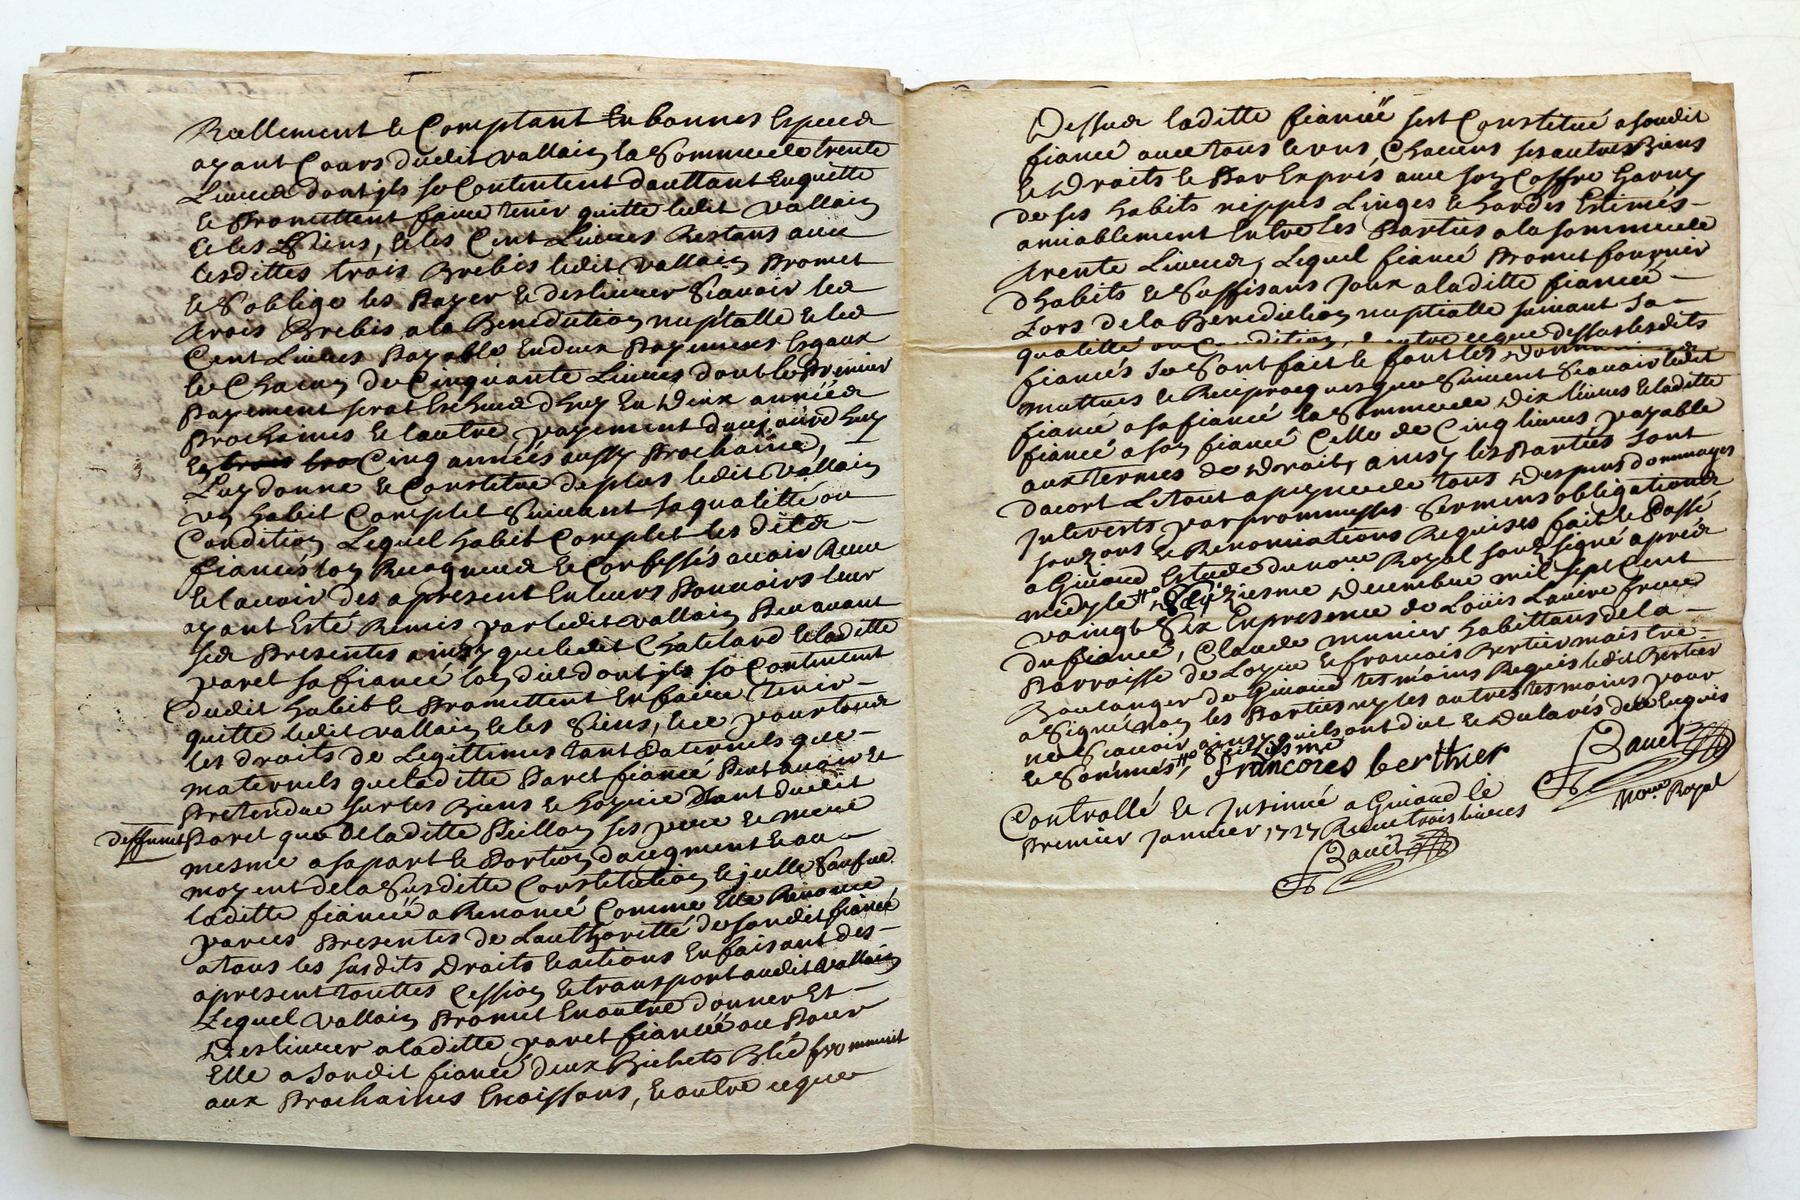 Reellement et Comptant en bonnes Especes
ayant Cours dudit vallain la Somme de trente
Livres dont ils se Contentent dauttant En quitte
et Promettent faire tenir quitte ledit Vallain
et les Siens, et les Cent Livres Restans avec
lesdittes trois Brebis ledit Vallain Promet
et Soblige les Payer et deslivrer Scavoir les
trois Brebis a la Benediction nuptialle et les
Cent Livres Payable En deux Payements Esgaux
et Chacun de Cinquante Livres dont le Premier
Payement serat Escheu dhuy En Deux années
Prochaines et lautre payement daujourdhuy
En Cinq années aussy Prochaine,
Luy donne et Constitue de plus ledit Vallain
un habit Complet Suivant sa qualitté ou
Condition Lequel habit Complet les dits
fiancés lon Recogneu et Confessés avoir Receu
et lavoir des apresent En leurs Pouvoirs leur
ayant Esté Remis par ledit vallain Peu avant
ses Presentes ainsy que ledit Chatelard et laditte
paret sa fiancé lon dit dont ils se Contentent
dudit habit et Promettent En faire tenir
quitte ledit vallain et les Siens, et ce pour tous
les droits de Legittimes tant Paternels que
maternels que laditte Paret fiancé Peut avoir et
Pretendue sur les Biens et hoyrie tant dudit
deffunt Paret que de laditte Peillon ses pere et mere
mesme a sa part et Portion daugment et au
moyent de la Susditte Constitution et jcelle Sauf ue
laditte fiancéé a Renoncé Comme Elle Renonce
par ces Presentes de Lauthoritté de son dit fiancé
a tous les susdits Droits et actions En faisant des
apresent touttes Cession et transport audit Vallain
Lequel vallain Promet En outre donner Et
Deslivrer a laditte paret fiancéé ou Pour
Elle a Son dit fiancé deux Bichets Bled fromment
aux Prochaines Moissons, et outre ce que
Dessus laditte fiancéé sest Constitué a sondit
fiancé avec tous et uns Chacuns ses autres Biens
et Droits et Par Exprés avec son Coffre Garny
de ses habits nippes Linges et hardes Estimés
amiablement Entre les Parties a la somme de
trente Livres, Lequel fiancé Promet fournir
dhabits et Suffisans Joux a laditte fiancéé
Lors de la Benediction nuptialle suivant sa
qualitté ou Condition, et outre ce que dessus lesdits
fiancés se Sont fait et font les Donnations
mutues et Reciproques que Suivent Scavoir ledit
fiancé a sa fiancé la Somme de Dix livres et laditte
fiancé a son fiancé Celle de Cinq livres payable
aux termes de Droit, ainsy les Parties Sont
dacort Le tout a peyne de tous Despens dommages
Interests par prommesses Sermens obligations
soubzons et Renonciations Requises fait et Passé
a Givaud Estude du nore Royal soubz signé aprés
midy le Seiziesme Decembre mil sept Cent
vaingt Six En presence de Loüis Lanire frere
du fiancé, Claude munier habittans de la
Parroisse de Loyre et francois Bertier maistre
Boulanger de Givaud tesmoins Requis ledit Bertier
a Signé non les Parties ny les autres tesmoins pour
ne Scavoir ainsy quils ont dit et Declarés de ce Enquis
et Sommés, Seiziesme
francoies berthier
Bauet
Nore. Royal
Controllé et Insinué a Givaud le
Premier Janvier 1727 Receu trois livres
Bauet